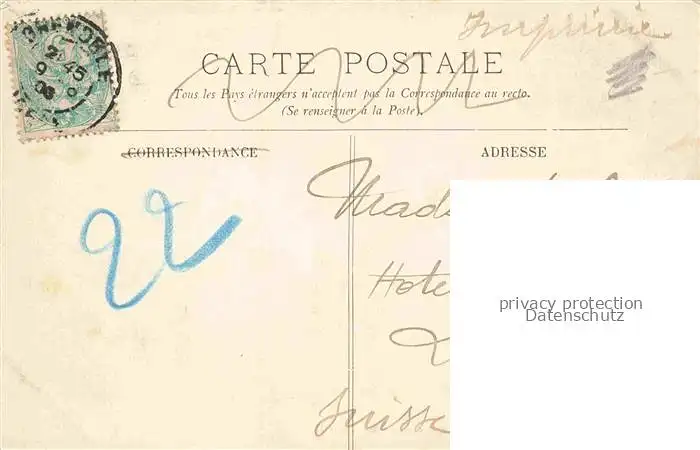 GRENOBLE
Imprimé
CARTE POSTALE
Tous les Pays étrangers n'acceptent pas la Correspondance au recto.
(Se renseigner à la Poste).
CORRESPONDANCE
ADRESSE
22
Mada
Hote
privacy protection
Datenschutz
Suisse